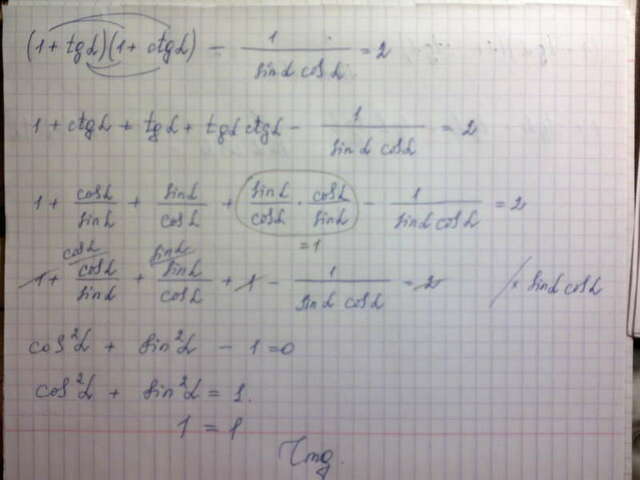 (1 + tgα)(1 + ctgα) − 1/(sinα cosα) = 2
1 + ctgα + tgα + tgα ctgα − 1/(sinα cosα) = 2
1 + cosα/sinα + sinα/cosα + sinα/cosα · cosα/sinα − 1/(sinα cosα) = 2
= 1
cosα sinα
1 + cosα/sinα + sinα/cosα + 1 − 1/(sinα cosα) = 2 / × sinα cosα
cos²α + sin²α − 1 = 0
cos²α + sin²α = 1.
1 = 1